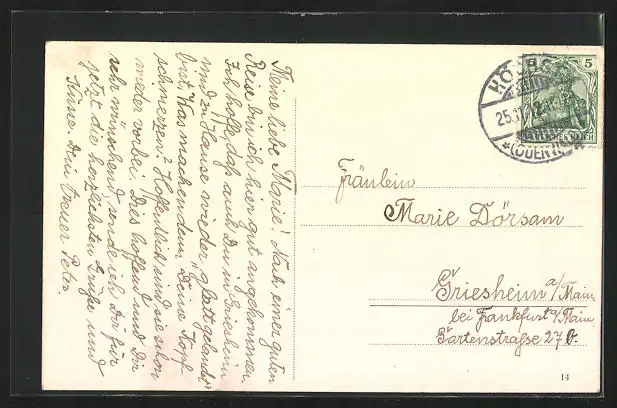 Meine liebe Marie! Nach einer guten
Reise bin ich hier gut angekommen.
Ich hoffe, daß auch Du in Griesheim
und zu Hause wieder glatt gelandet
bist. Was machen denn Deine Kopf-
schmerzen? Hoffentlich sind sie schon
wieder vorbei. Dies hoffend und Dir
sehr wünschend, sende ich Dir für
jetzt die herzlichsten Grüße und
Küsse. Dein treuer Peter.
5
25.11.12
(ODENW.)
REICH
Fräulein
Marie Dörsam
Griesheim a/Main
bei Frankfurt a/Main
Gartenstraße 27 b.
14